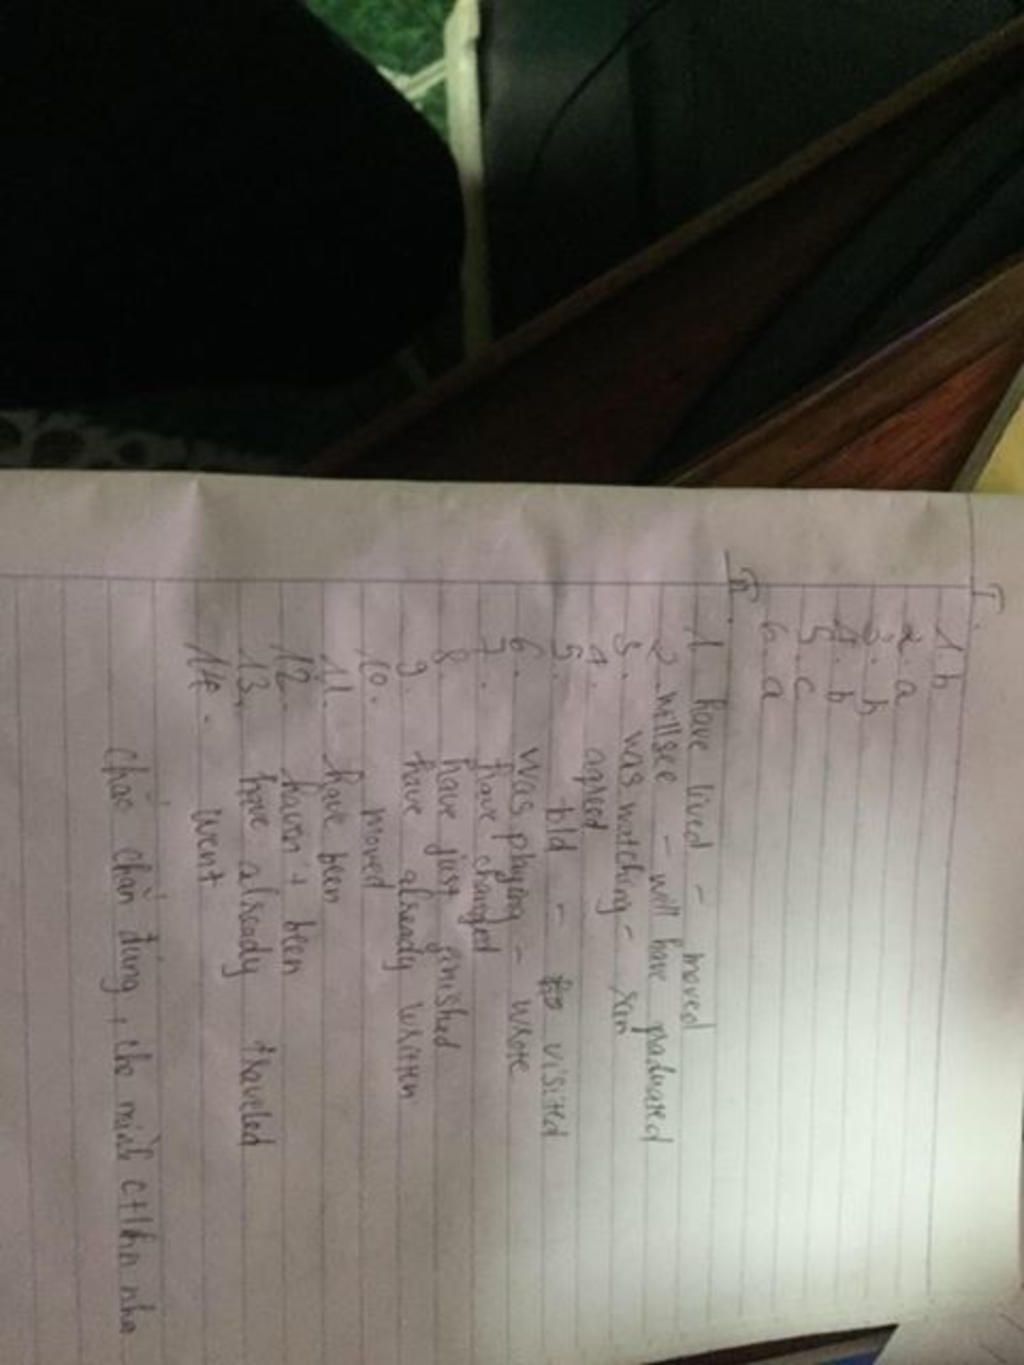 I.
1. b
2. a
3. b
4. b
5. c
6. a
II.
1. have lived - moved
2. will see - will have graduated
3. was watching -
4. agreed
5. - visited
6. was playing - wrote
7. have changed
8. have just finished
9. have already written
10. moved
11. have been
12. haven't been
13. have already traveled
14. went
chắc chắn đúng, cho mình ctlhn nha